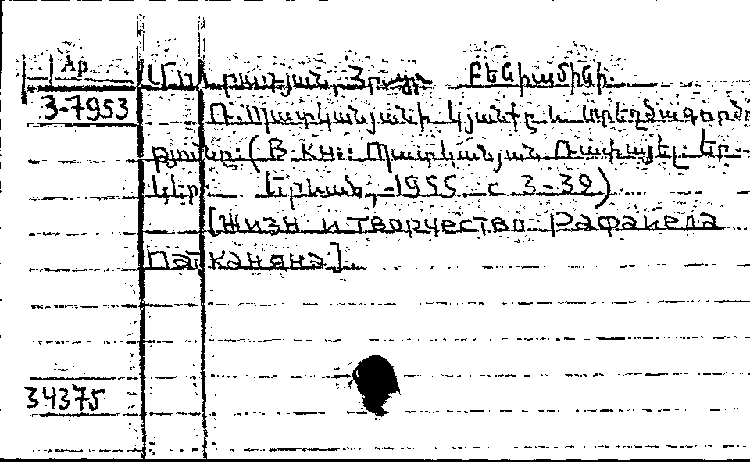 Ар
Մուրադյան, Հրայր Բենիամինի.
3-7953
Ռ. Պատկանյանի կյանքը և ստեղծագործու
թյունը. (В кн.: Պատկանյան Ռափայել. Ընտ.
երկեր. Երևան, 1955. с 3-39)
[Жизн и творчество Рафаиела
Патканяна].
34375